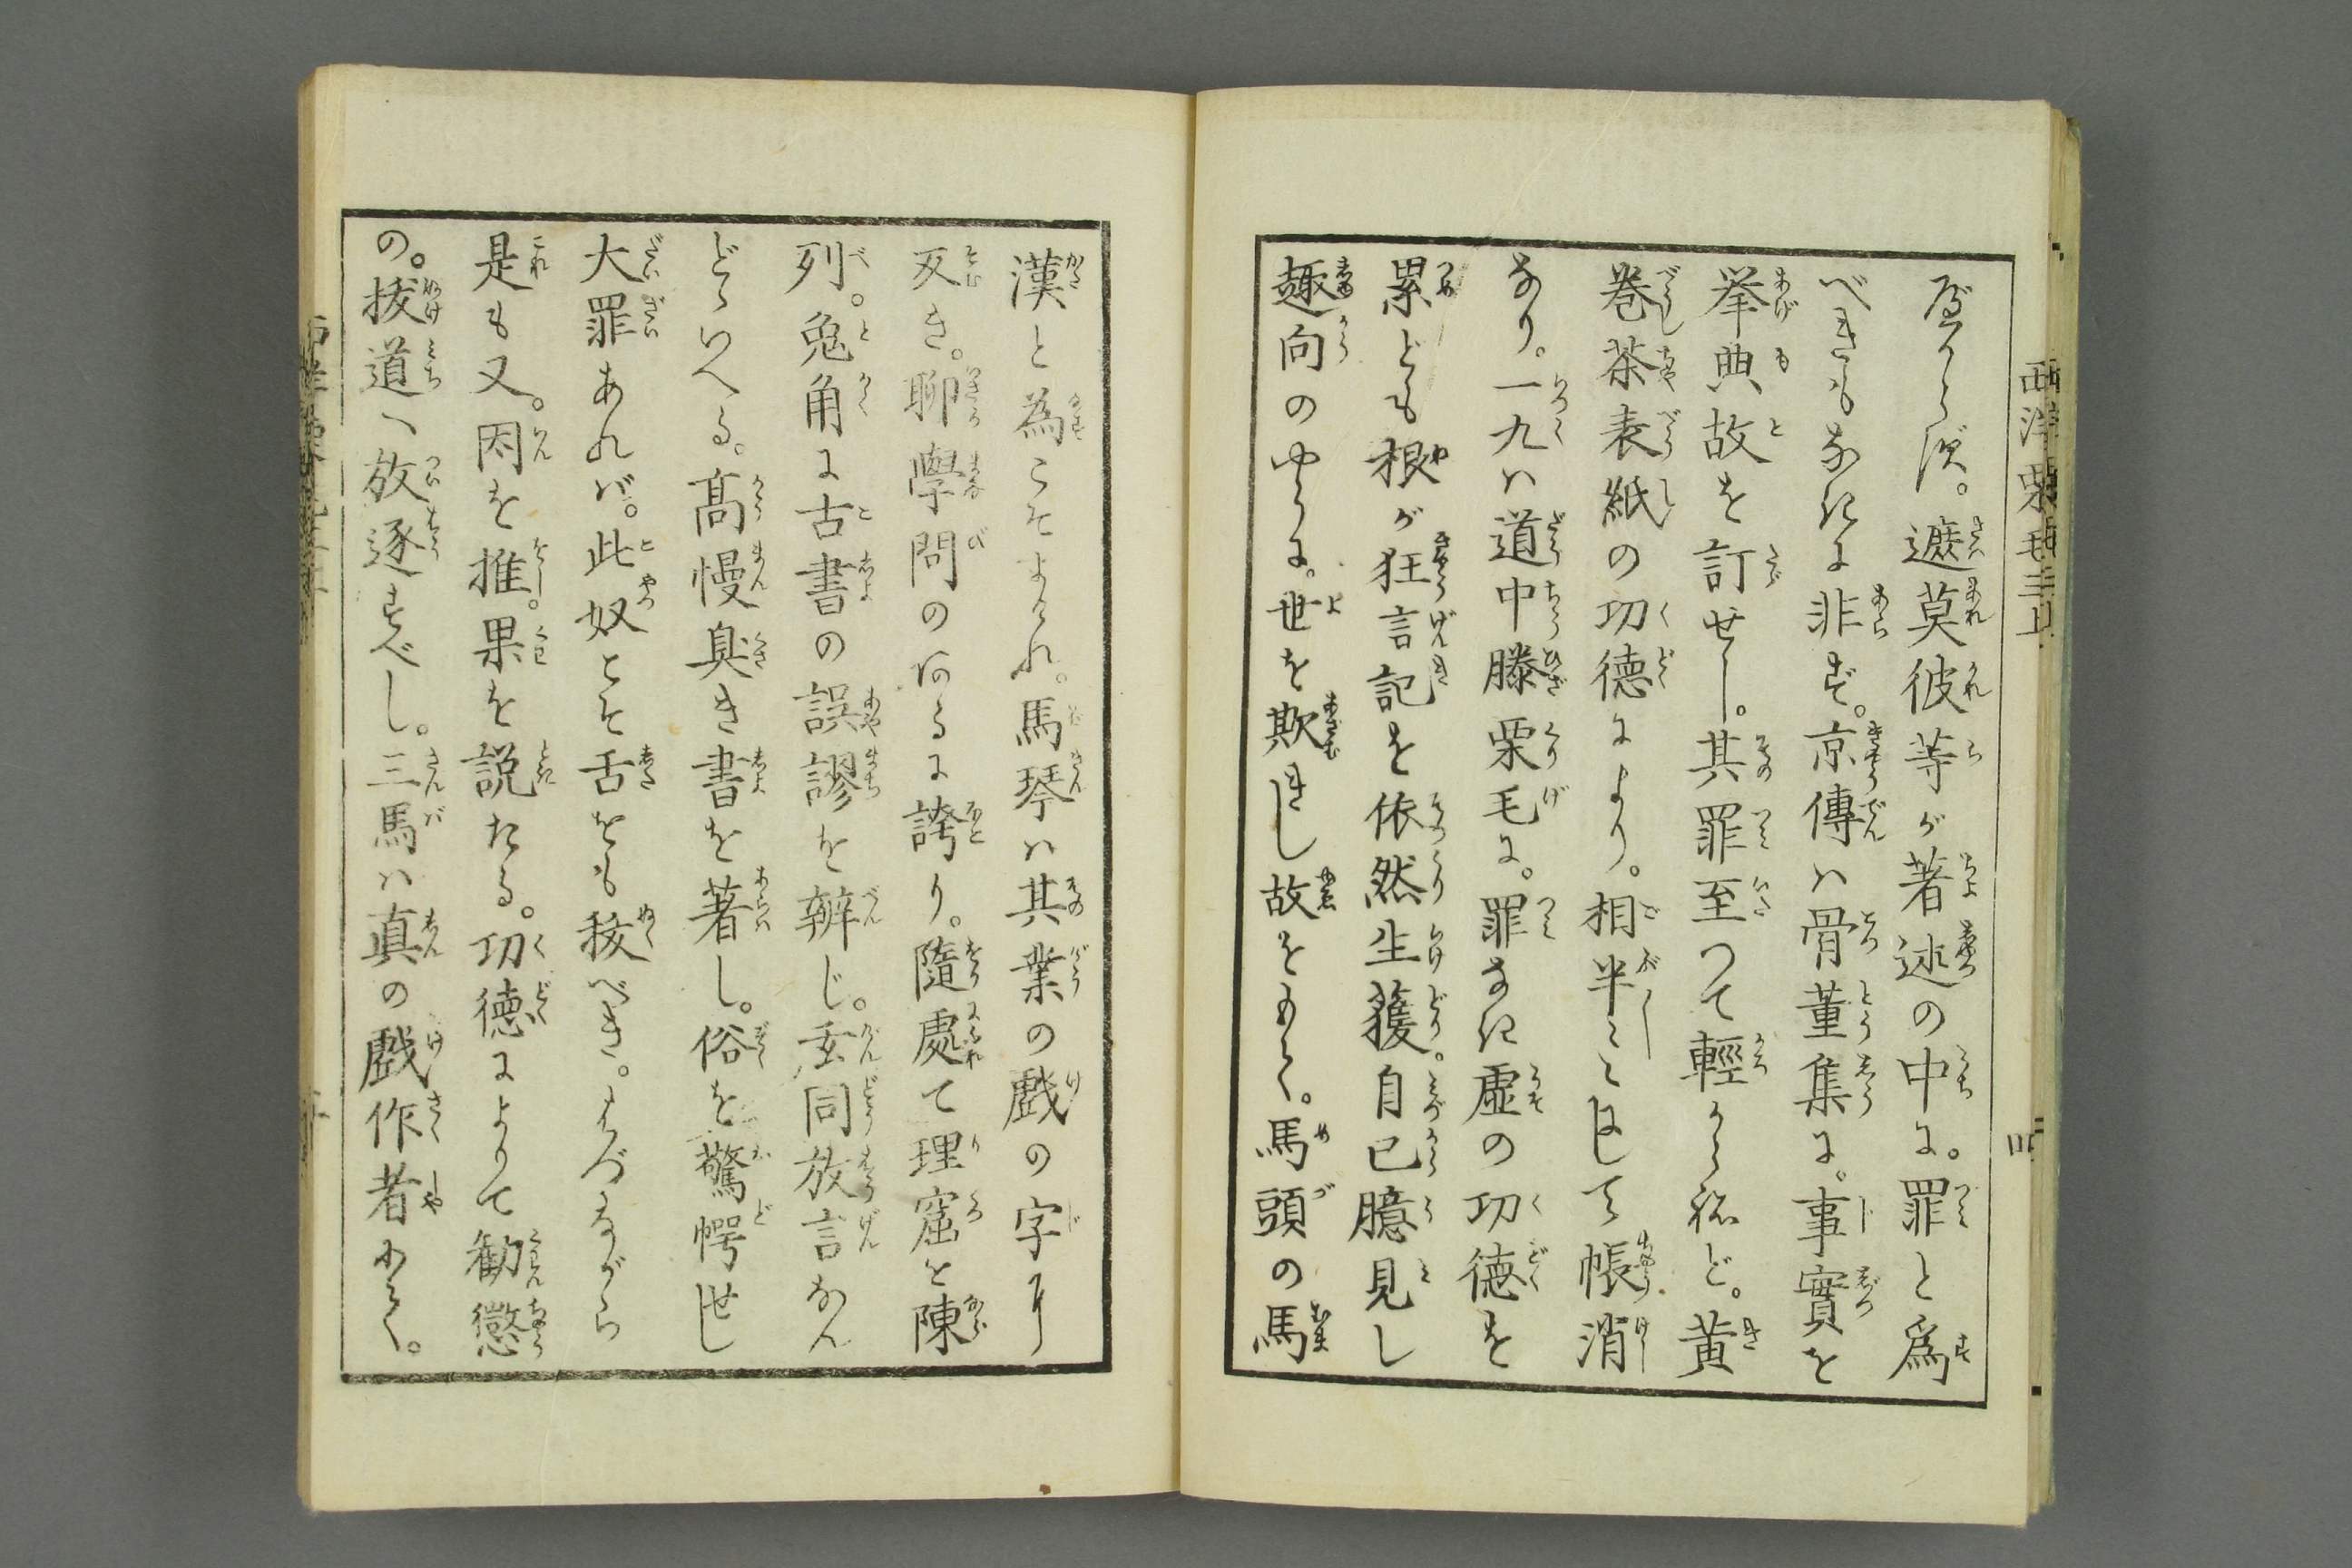 べからず。遮莫彼等が著述の中に。罪と為
べきもなきに非ず。京傳ハ骨董集に。事實を
挙典故を訂せし。其罪至つて輕からねど。黄
巻茶表紙の功徳により。相半ミにして帳消
なり。一九ハ道中膝栗毛に。罪なき虚の功徳を
累ども根が狂言記を依然生獲。自己臆見し
趣向のやうに。世を欺きし故をもて。馬頭の馬
漢と為こそよけれ。馬琴ハ其業の戯の字に
反き。聊學問のあるに誇り。隨處て理窟を陳
列。兎角に古書の誤謬を辨じ。玄同放言なん
どゝいへる。高慢臭き書を著し。俗を驚愕せし
大罪あれバ。此奴こそ舌をも抜べき。さハさりながら
是も又。因を推し。果を説たる。功徳によりて勧懲
の。抜道へ放逐すべし。三馬ハ真の戯作者にて。
西洋栗毛三上
四